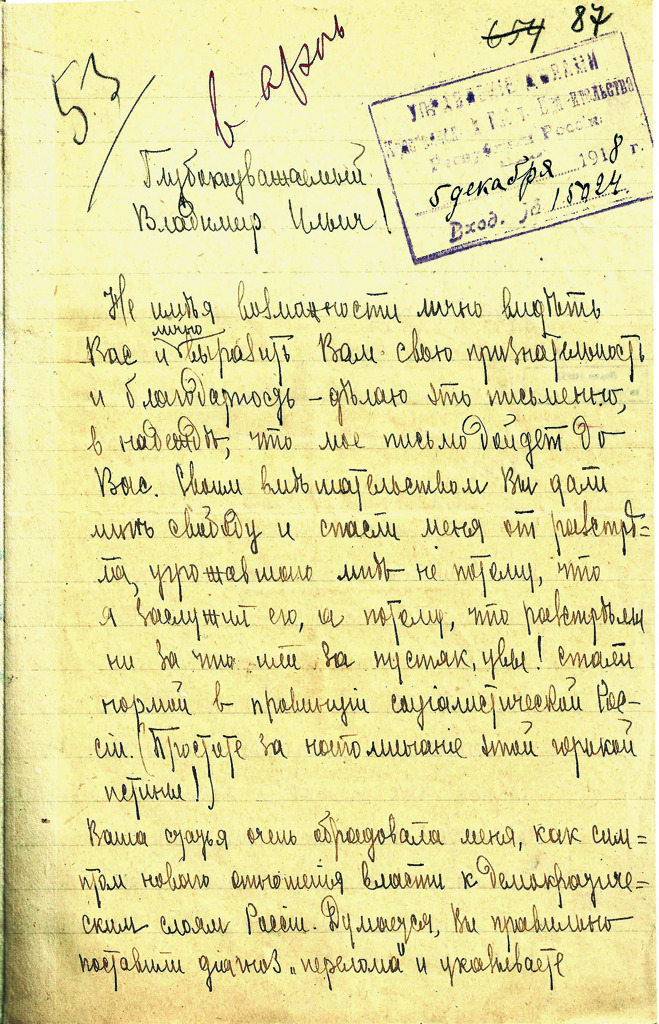 654 87
53
в архив
УПРАВЛЕНІЕ ДѢЛАМИ
Республики Россіи
5 декабря 1918 г.
Вход. № 15024
Глубокоуважаемый
Владимир Ильич!
Не имѣя возможности лично видѣть
Вас и лично выразить Вам свою признательность
и благодарность – дѣлаю это письменно,
в надеждѣ, что мое письмо дойдет до
Вас. Своим вмѣшательством Вы дали
мнѣ свободу и спасли меня от разстрѣ=
ла, угрожавшаго мнѣ не потому, что
я заслужил его, а потому, что разстрѣлы
ни за что или за пустяк, увы! стали
нормой в провинціи соціалистической Рос-
сіи. (Простите за напоминаніе этой горькой
истины!)
Ваша статья очень обрадовала меня, как сим=
птом новаго отношенія власти к демократиче=
ским слоям Россіи. Думается, Вы правильно
поставили діагноз „перелома" и указываете